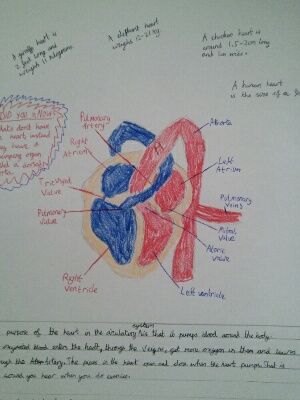 A giraffe heart is
2 feet long and
weighs 11 kilograms.
A elephant heart
weighs 12-21 kg.
A chicken heart is
around 1.5-2cm long
and 1cm wide.
A human heart
is the size of a
DID YOU KNOW?
don't have
heart instead
have a
pumping organ
Pulmonary
Artery
Right
Atrium
Tricuspid
Valve
Pulmonary
Valve
Right
Ventricle
Aorta
Left
Atrium
Pulmonary
veins
Mitral
Valve
Aortic
valve
Left ventricle
system
purpose of the heart in the circulatory is that it pumps blood around the body.
blood enters the heart, through the veins, get more oxygen in them and leaves
through the Artery. The valves in the heart open and close when the heart pumps. That is
sound you hear when you do exercise.